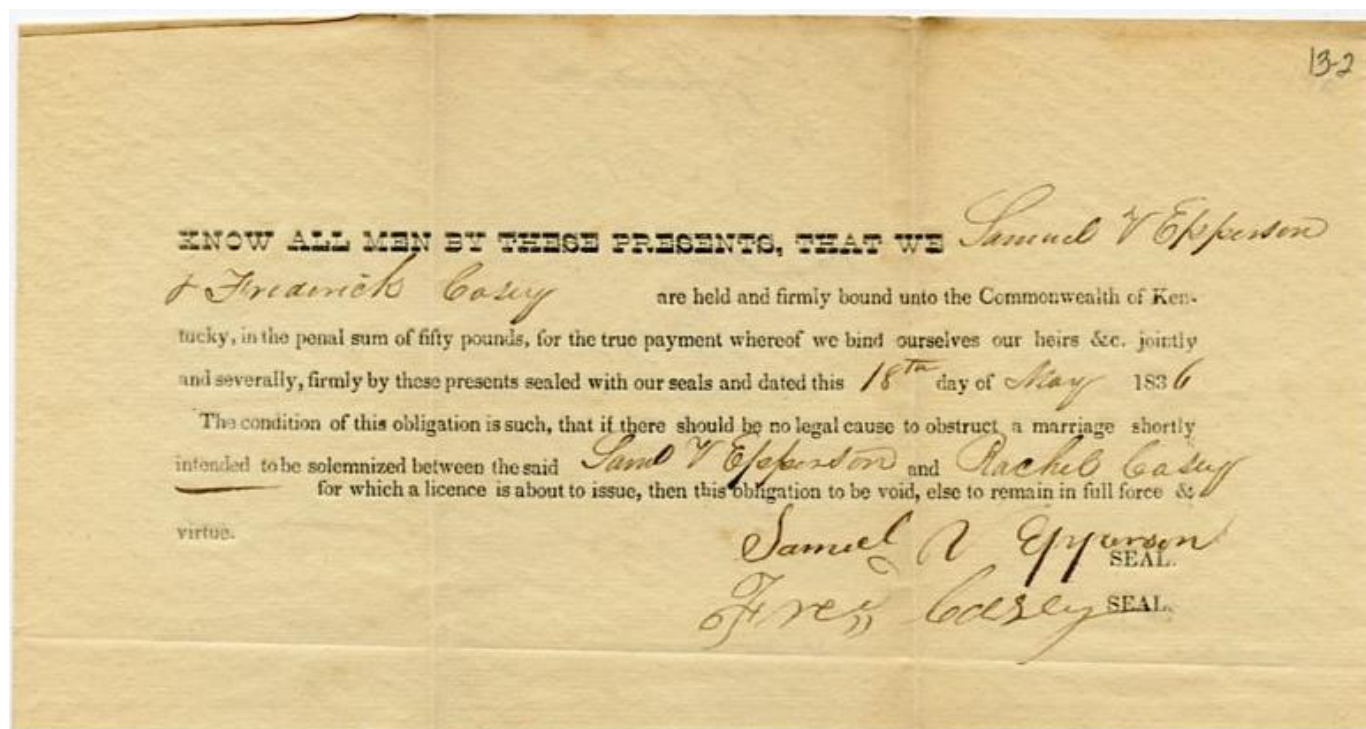 13-2
KNOW ALL MEN BY THESE PRESENTS, THAT WE Samuel V Epperson
& Frederick Casey are held and firmly bound unto the Commonwealth of Ken-
tucky, in the penal sum of fifty pounds, for the true payment whereof we bind ourselves our heirs &c. jointly
and severally, firmly by these presents sealed with our seals and dated this 18th day of May 1836
The condition of this obligation is such, that if there should be no legal cause to obstruct a marriage shortly
intended to be solemnized between the said Saml V Epperson and Rachel Casey
for which a licence is about to issue, then this obligation to be void, else to remain in full force &
virtue.
Samuel V Epperson SEAL.
Fred Casey SEAL.